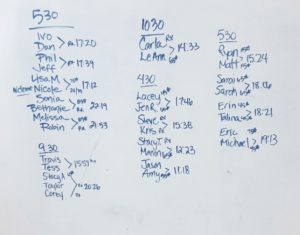 530
Ivo
Dan > RX 17:20
Phil
Jeff > RX 17:39
Lisa M.
Nicole > 17:12
Sonia
Bethanie > RX 22:19
Melissa
Robin > RX 21:53
9:30
Travis
Tess > 15:57
Stacy A
Taylor > RX 20:26
Corey
1030
Carla RX
LeAnn > 14:33
430
Lacey
Jen R. > 17:46
Steve RX
Kris > 15:38
Stacy T. RX
Marin > 12:23
Jason
Amy > 11:18
530
Ryan
Matt > 15:24
Sarai
Sarah > 18:06
Erin
Talina > 18:21
Eric
Michael > 19:13